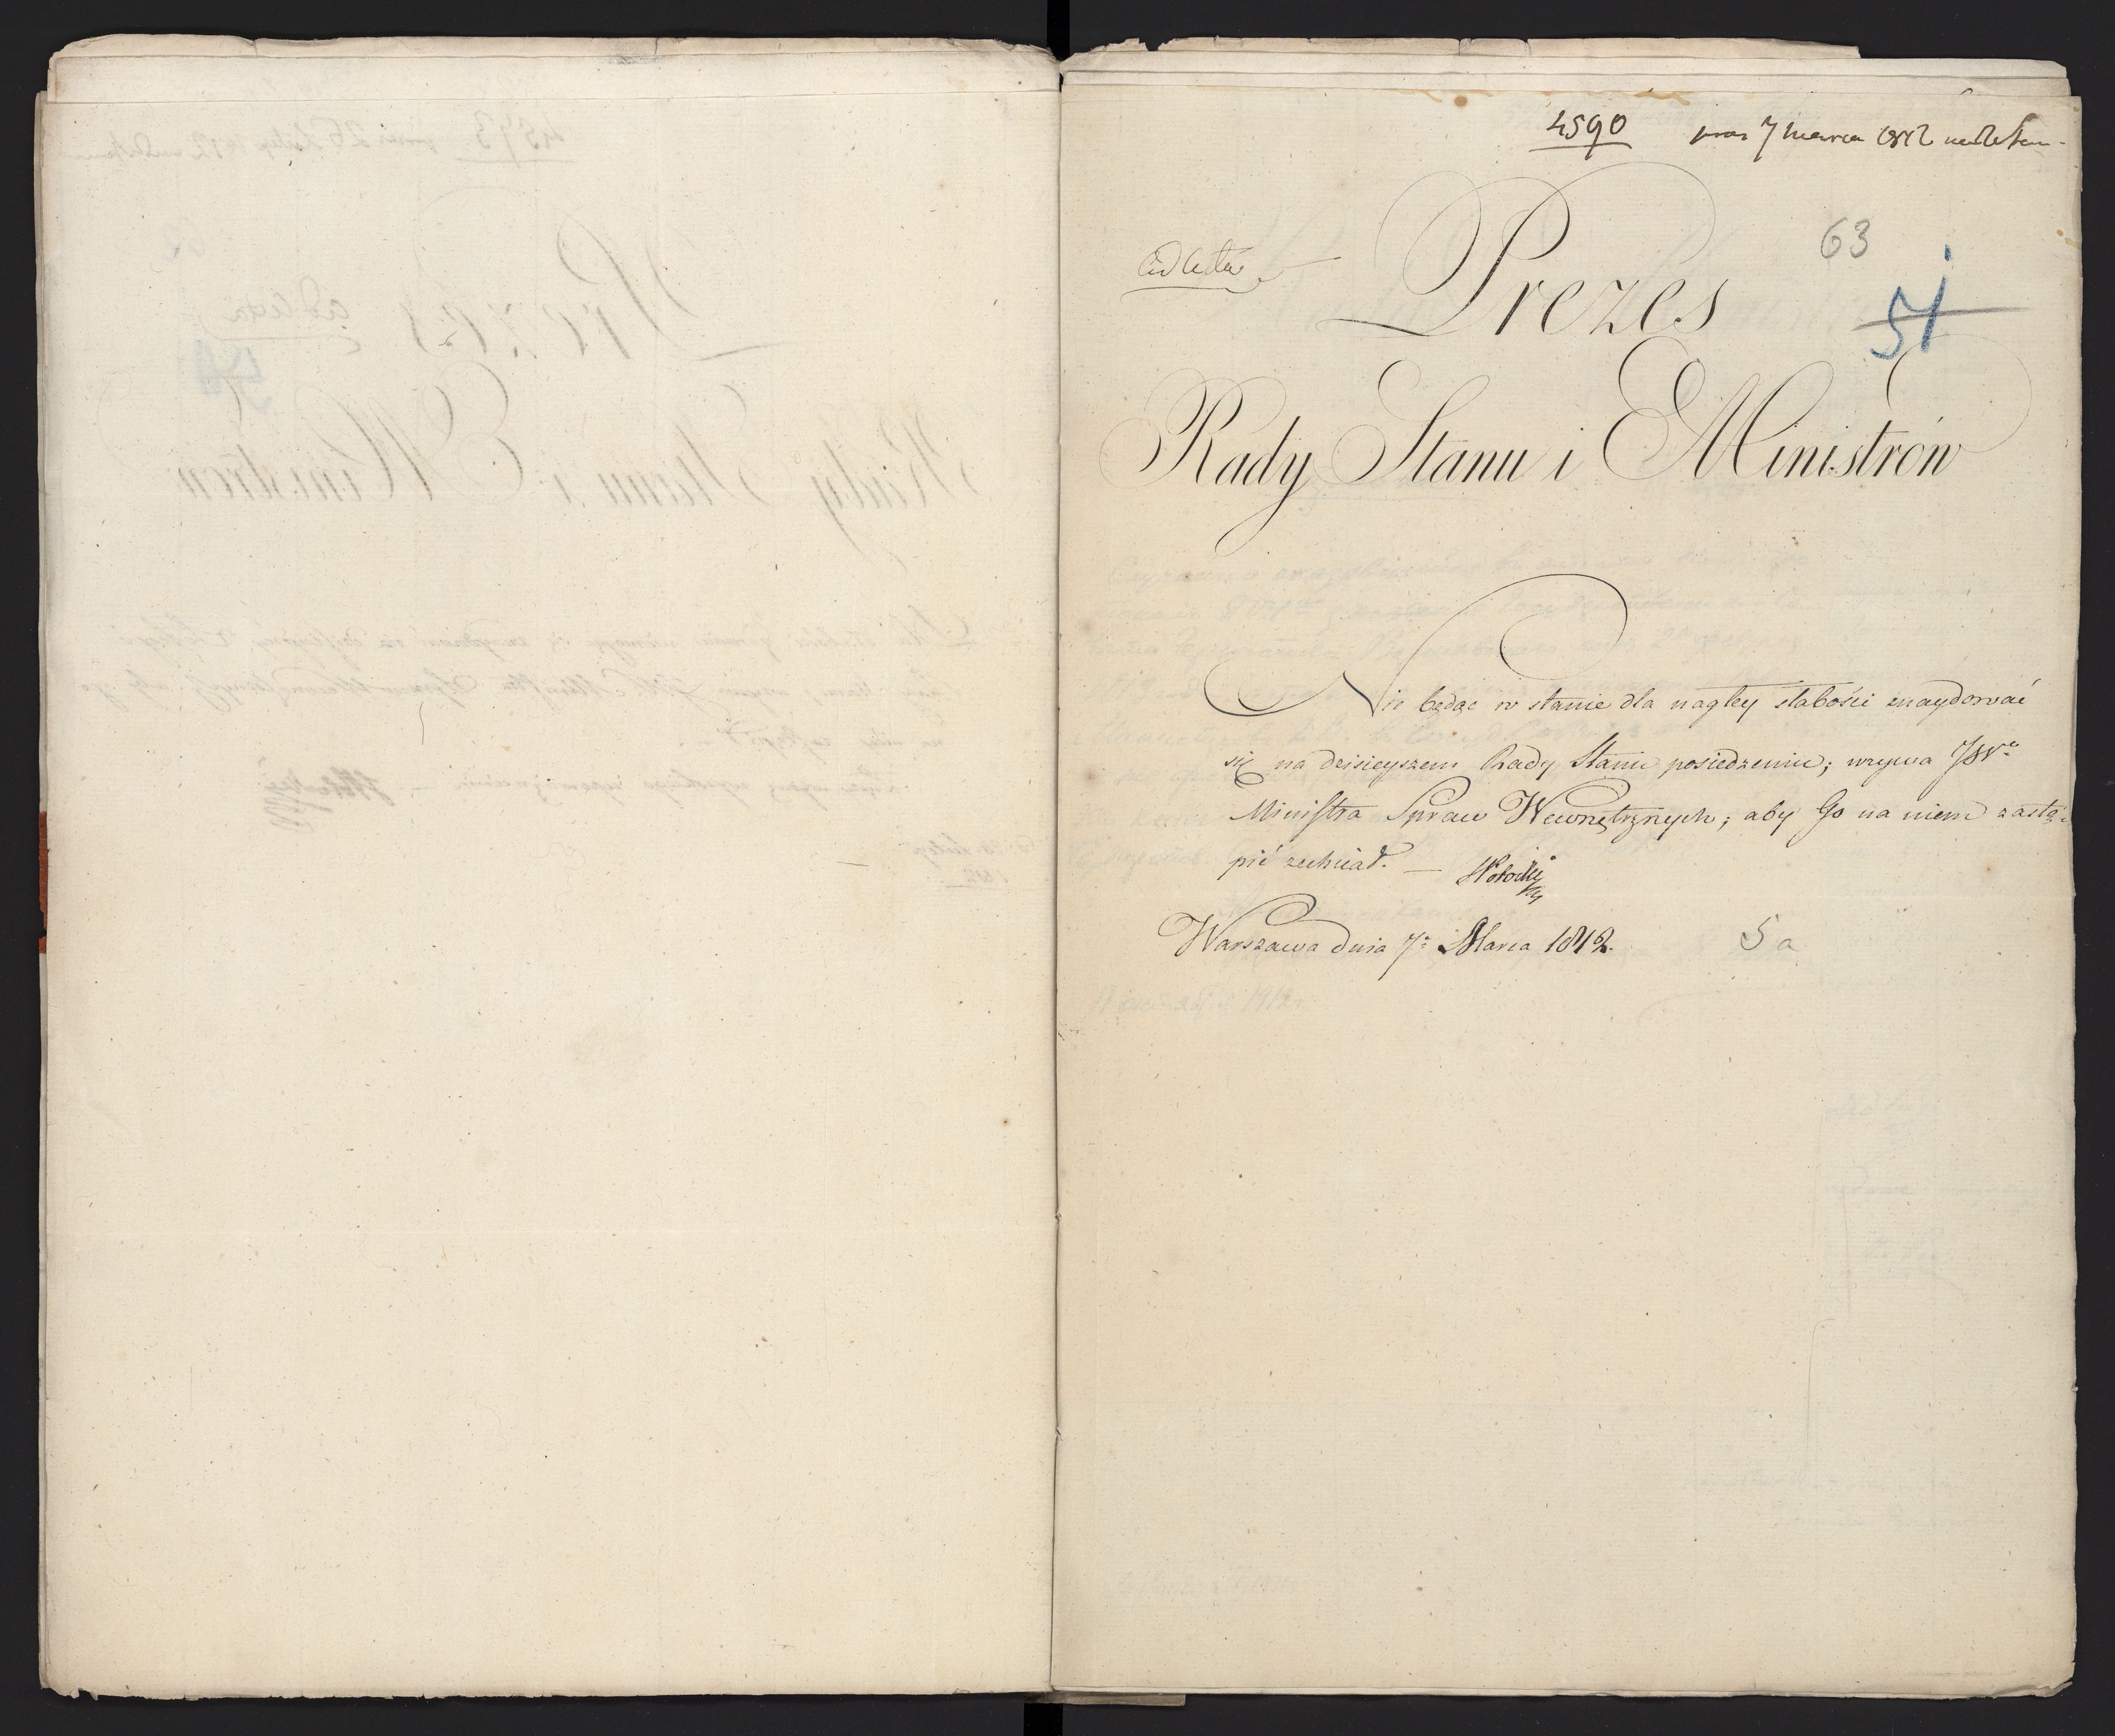 4590 pras 7 marca 1812
63
ad acta
Prezes
51
Rady Stanu i Ministrów
Nie będąc w stanie dla nagłey słabości znaydować
się na dzisieyszem Rady Stanu posiedzeniu; wzywa JWo
Ministra Spraw Wewnętrznych; aby Go na niem zastą-
pić zechciał. — SPotocki
Warszawa dnia 7o Marca 1812.
5 a